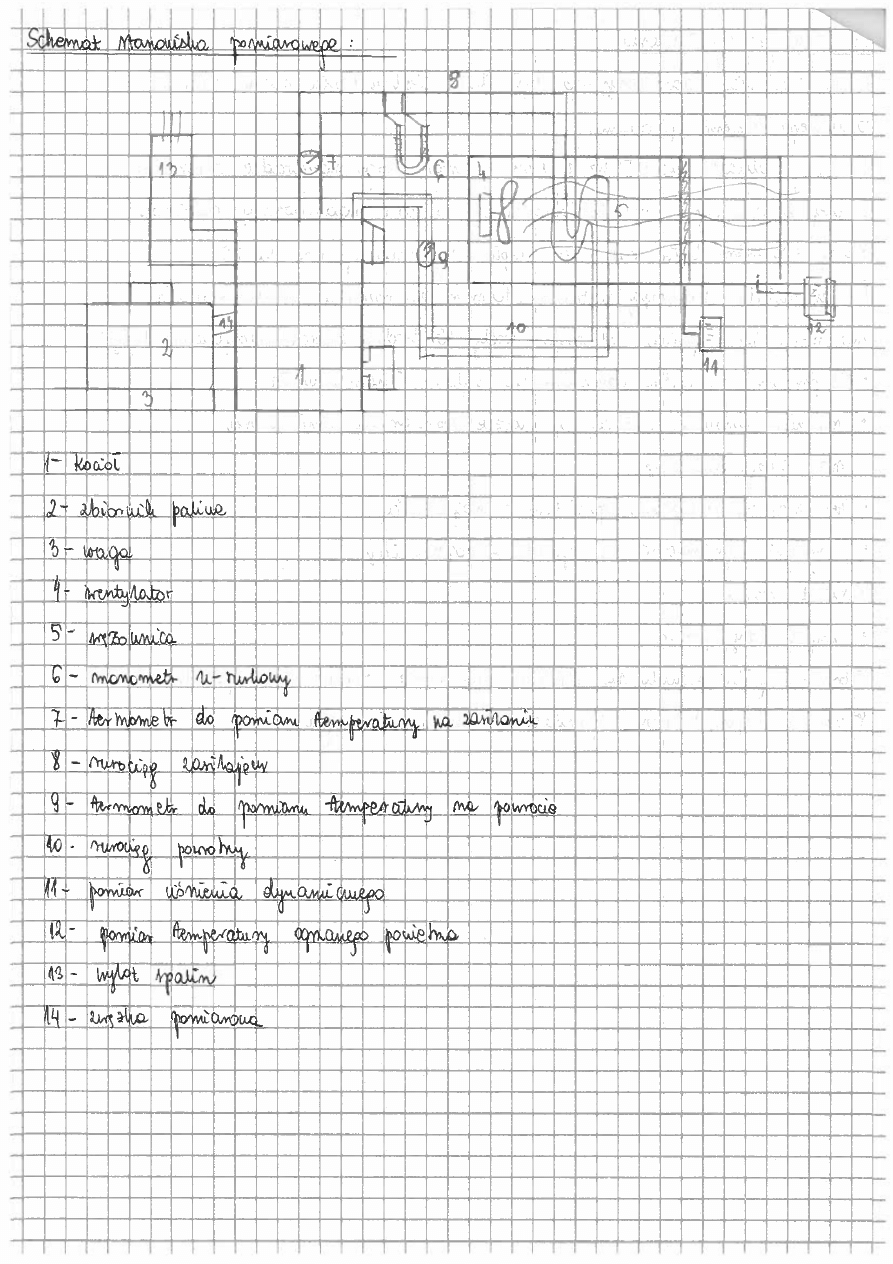 Schemat stanowiska pomiarowego:
8
13
7
6
4
5
9
10
14
2
1
3
12
11
1- Kocioł
2- zbiornik paliwa
3- waga
4- wentylator
5- wężownica
6- manometr u-rurkowy
7- termometr do pomiaru temperatury na zasilaniu
8- rurociąg zasilający
9- termometr do pomiaru temperatury na powrocie
10- rurociąg powrotny
11- pomiar ciśnienia dynamicznego
12- pomiar temperatury ogrzanego powietrza
13- wylot spalin
14- zwężka pomiarowa